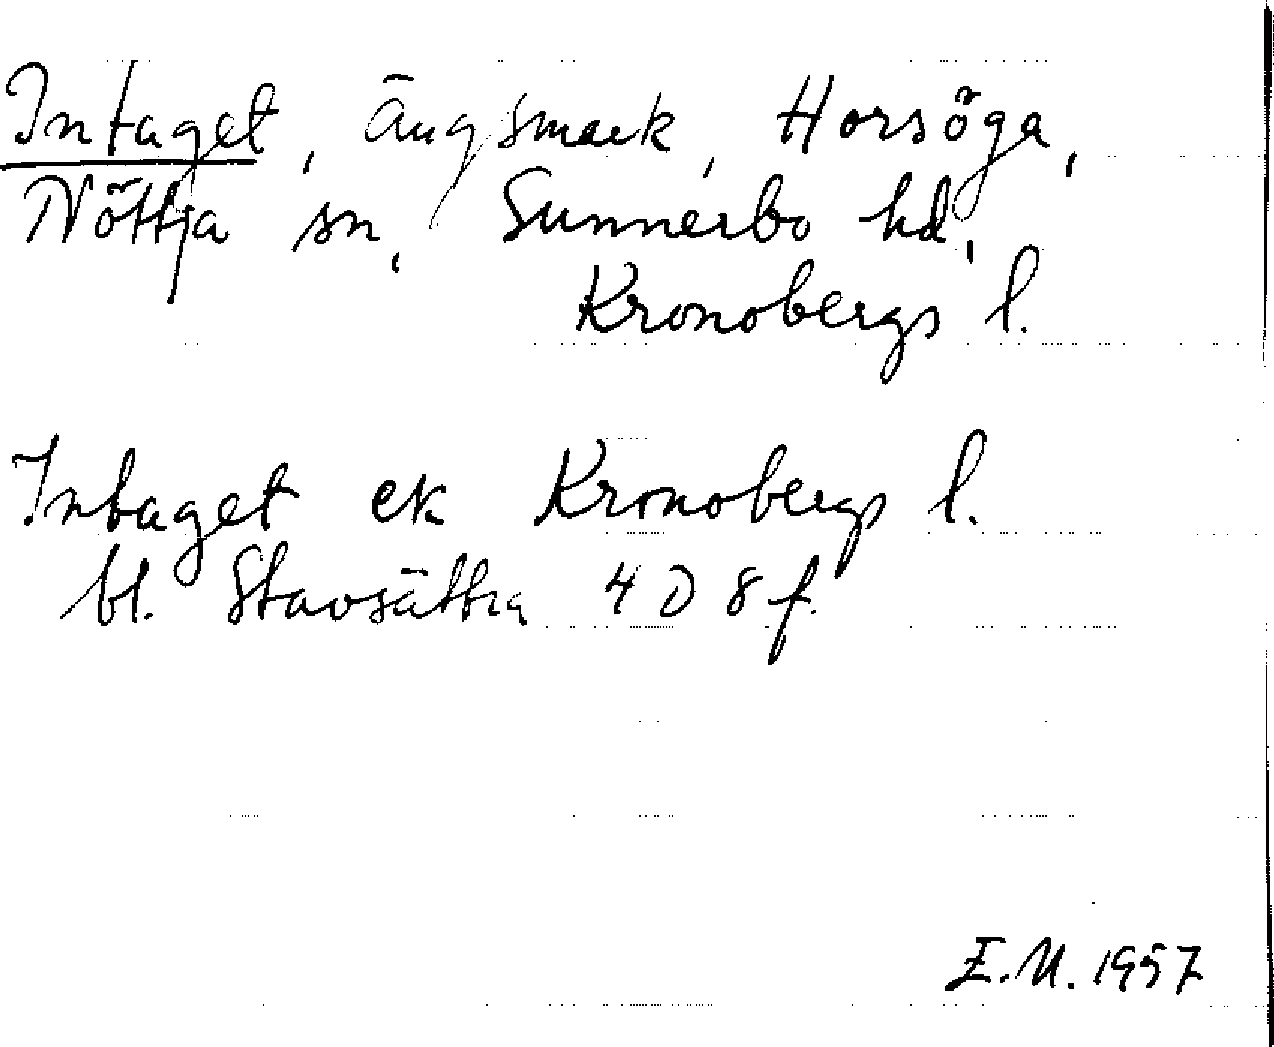 Intaget, ängsmark, Horsöga,
Nöttja sn, Sunnerbo hd,
Kronobergs l.
Intaget ek Kronobergs l.
bl. Stavsättra 4 D 8 f.
E.M. 1957